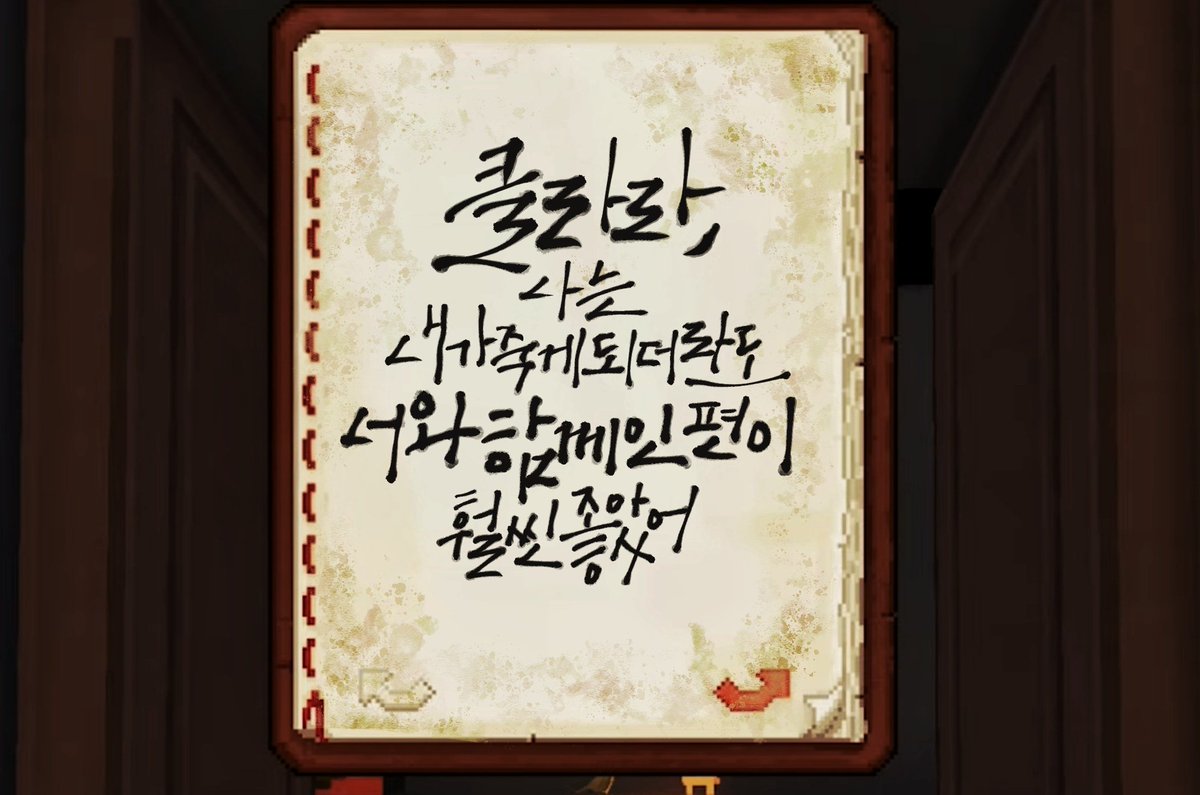 클라라,
나는
내가 죽게 되더라도
너와 함께인 편이
훨씬 좋았어